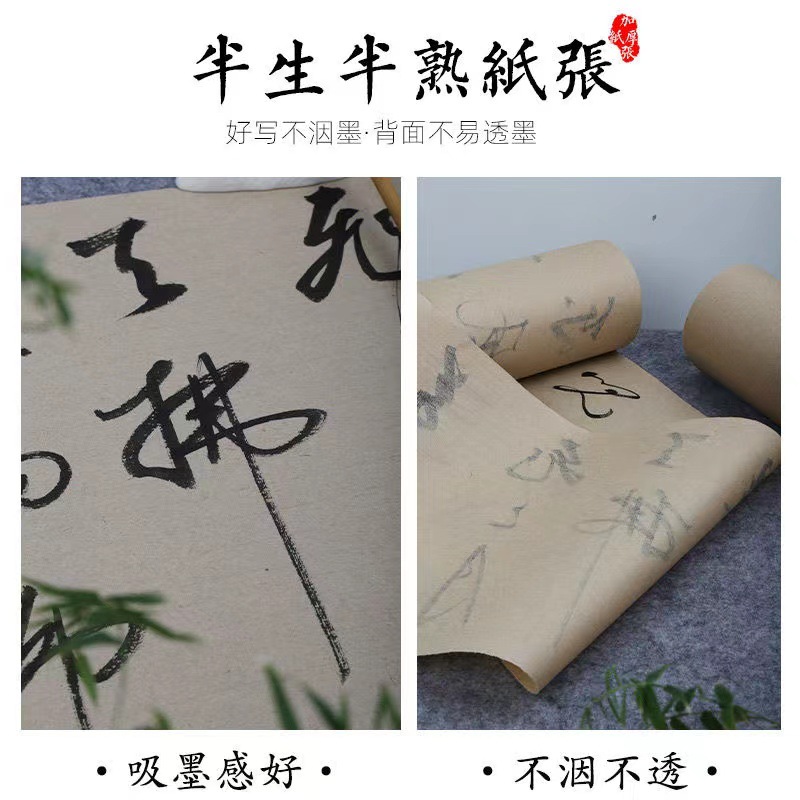 半生半熟紙張
加厚
紙張
好写不洇墨·背面不易透墨
拂
·吸墨感好·
·不洇不透·